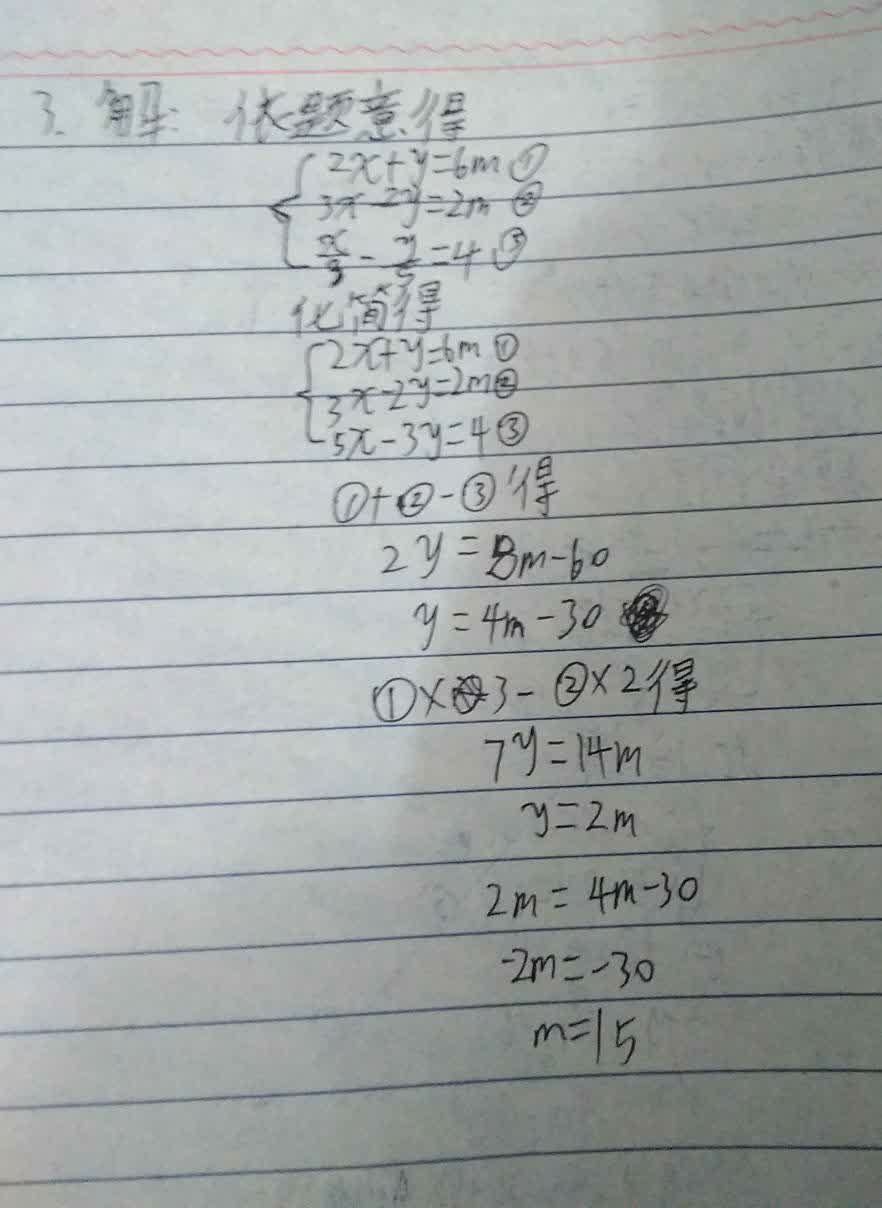 3. 解: 依题意得
2x+y=6m ①
3x-2y=2m ②
x/3 - y/5 =4 ③
化简得
2x+y=6m ①
3x-2y=2m ②
5x-3y=4 ③
①+②-③得
2y=8m-60
y=4m-30
①×3-②×2得
7y=14m
y=2m
2m=4m-30
-2m=-30
m=15